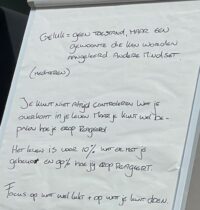 Geluk = geen toestand, maar een
gewoonte die kan worden
aangeleerd andere mindset
(mediteren)
Je kunt niet altijd controleren wat je
overkomt in je leven maar je kunt wel be-
palen hoe je erop reageerd
Het leven is voor 10% wat er met je
gebeurt en 90% hoe jij erop reageert.
Focus op wat wel lukt + op wat je kunt doen.